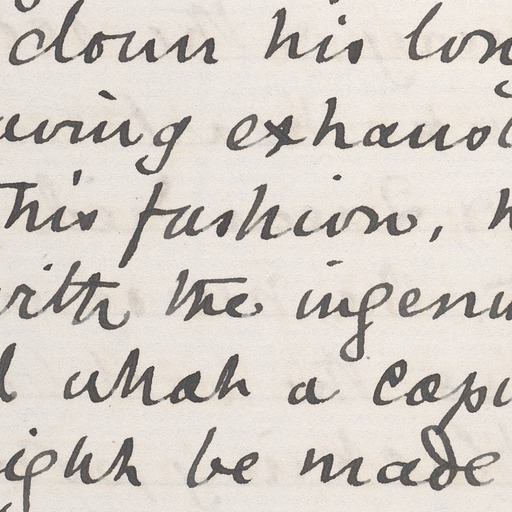 down his long
aving exhaust
this fashion, h
with the ingenu
d what a capi
ight be made